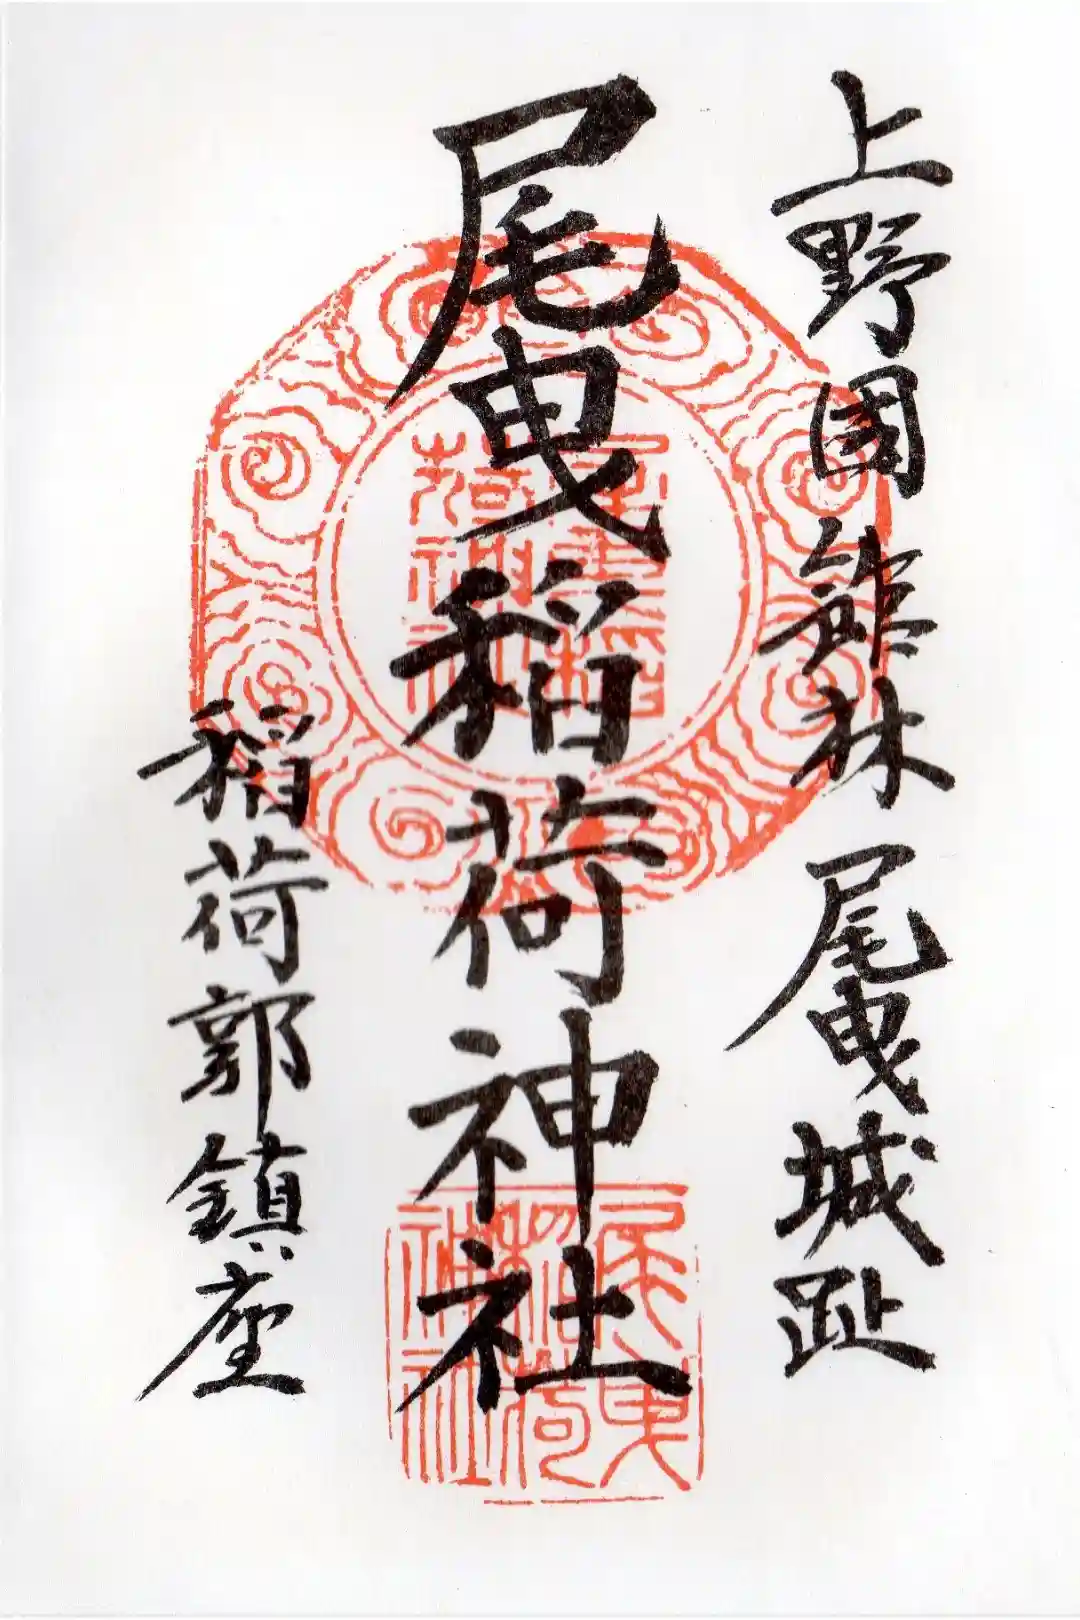 上野国館林尾曳城趾
尾曳稲荷神社
稲荷郭鎮座
尾曳稲荷神社
尾曳稲荷神社